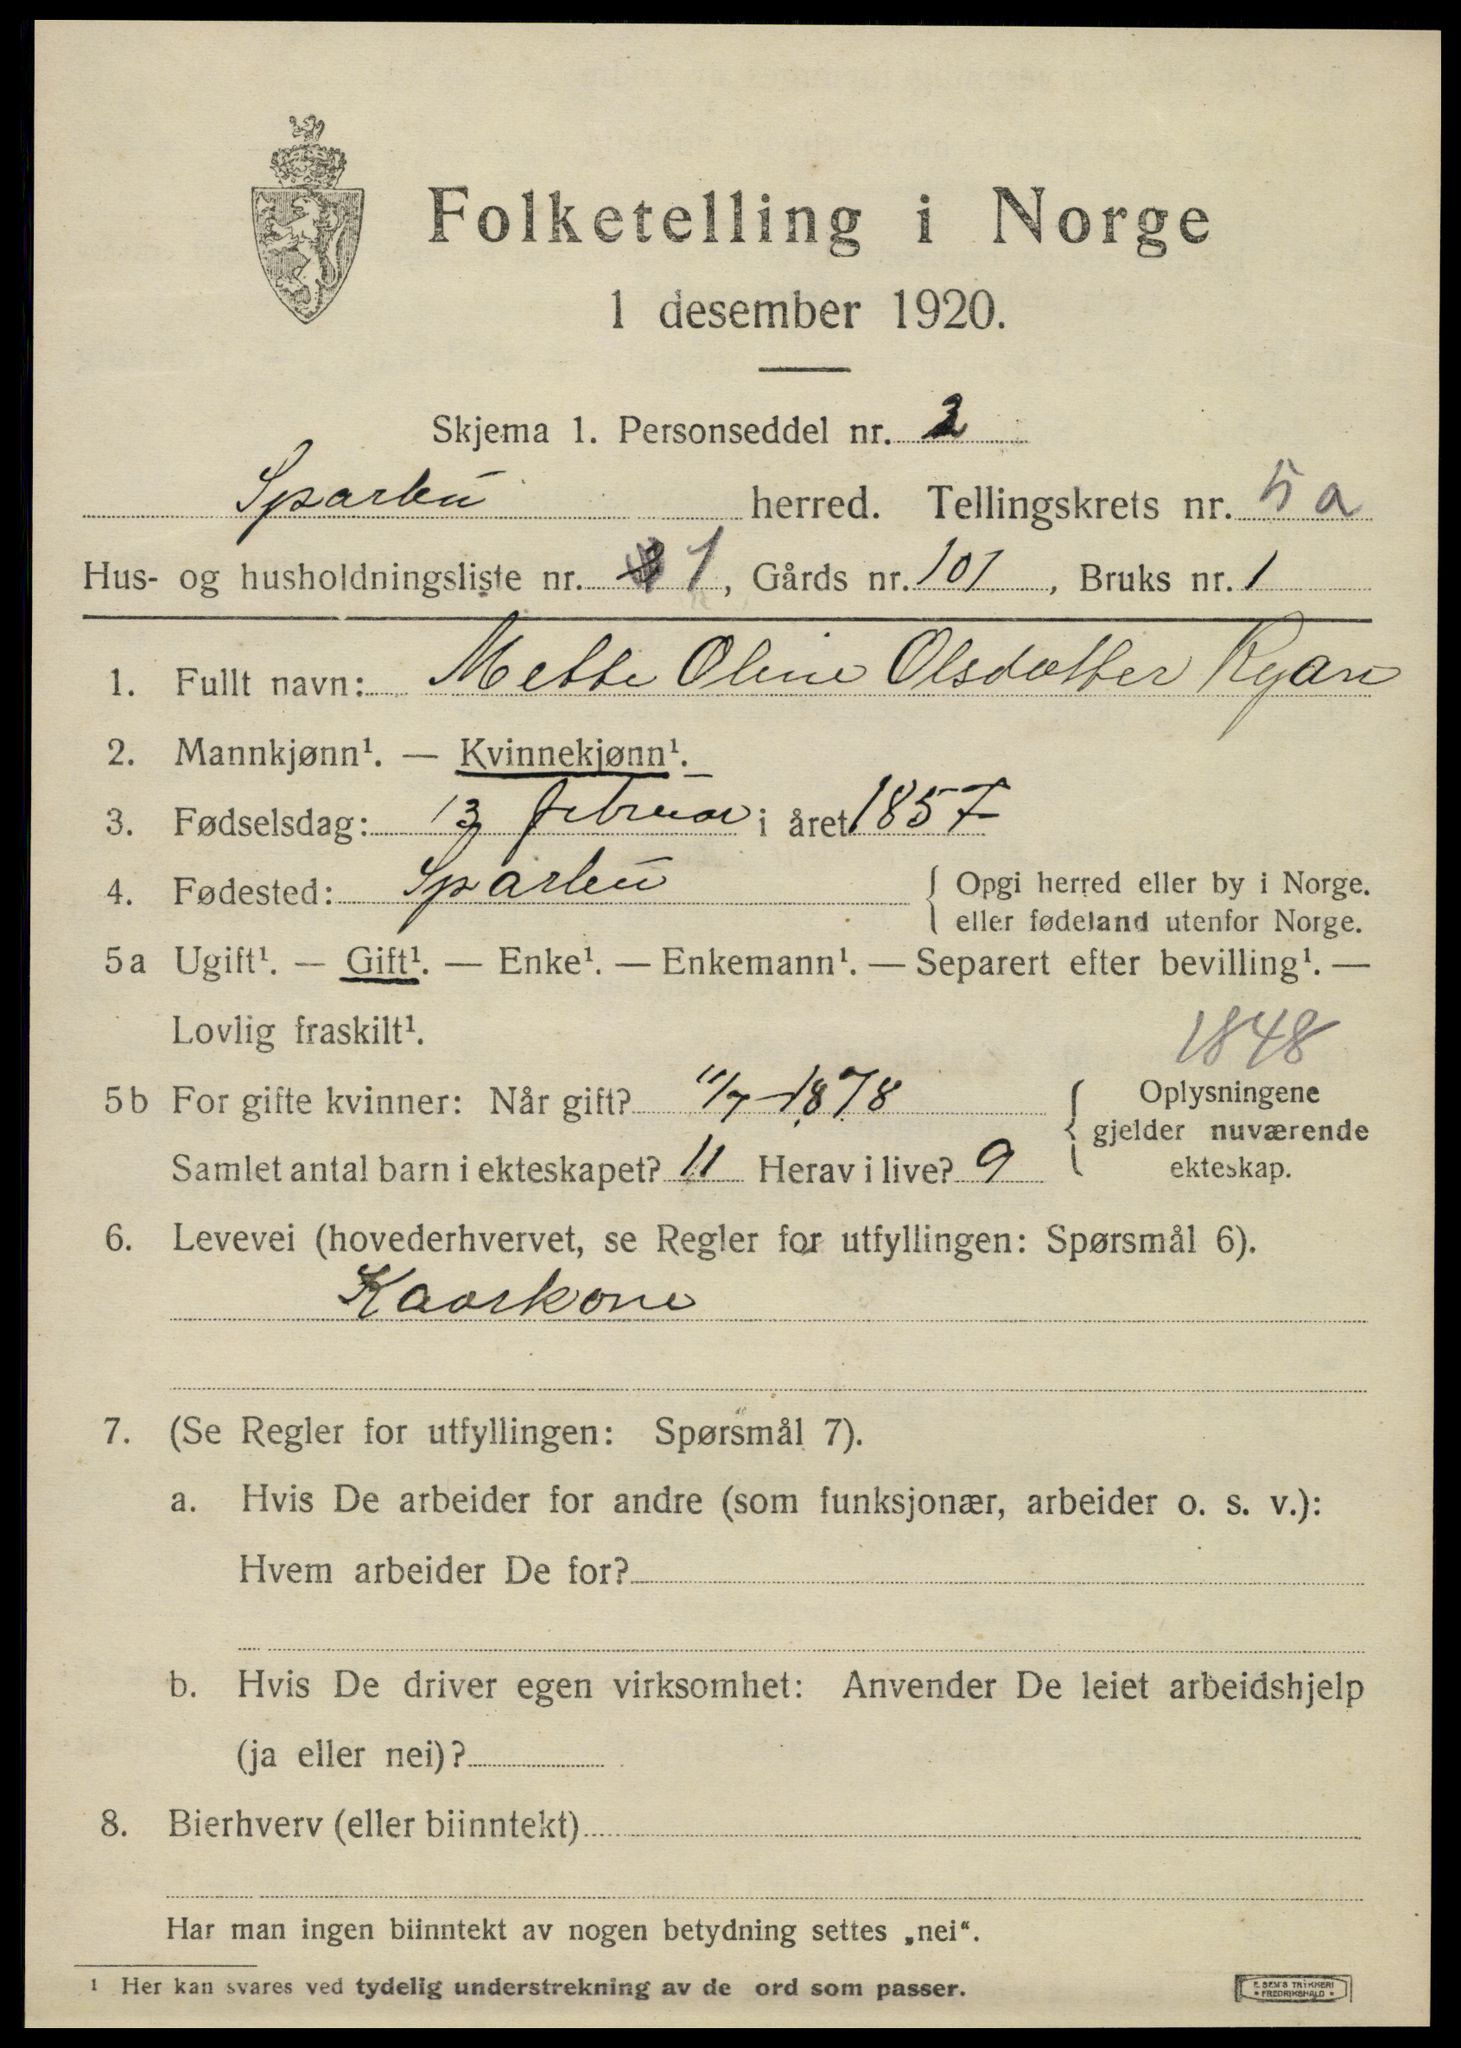 Folketelling i Norge
1 desember 1920.
Skjema 1. Personseddel nr. 2
Sparbu herred. Tellingskrets nr. 5 a
Hus- og husholdningsliste nr. 1, Gårds nr. 101, Bruks nr. 1
1. Fullt navn: Mette Oline Olsdatter Ryan
2. Mannkjønn¹. — Kvinnekjønn¹.
3. Fødselsdag: 13 februar i året 1857
4. Fødested: Sparbu { Opgi herred eller by i Norge.
eller fødeland utenfor Norge.
5a Ugift¹. — Gift¹. — Enke¹. — Enkemann¹. — Separert efter bevilling¹. —
Lovlig fraskilt¹.
1848
5b For gifte kvinner: Når gift? 11/7-1878 { Oplysningene
gjelder nuværende
Samlet antal barn i ekteskapet? 11 Herav i live? 9 ekteskap.
6. Levevei (hovederhvervet, se Regler for utfyllingen: Spørsmål 6).
Kaarkone
7. (Se Regler for utfyllingen: Spørsmål 7).
a. Hvis De arbeider for andre (som funksjonær, arbeider o. s. v.):
Hvem arbeider De for?
b. Hvis De driver egen virksomhet: Anvender De leiet arbeidshjelp
(ja eller nei)?
8. Bierhverv (eller biinntekt)
Har man ingen biinntekt av nogen betydning settes „nei“.
¹ Her kan svares ved tydelig understrekning av de ord som passer.
E. SEM'S TRYKKERI
FREDRIKSHALD